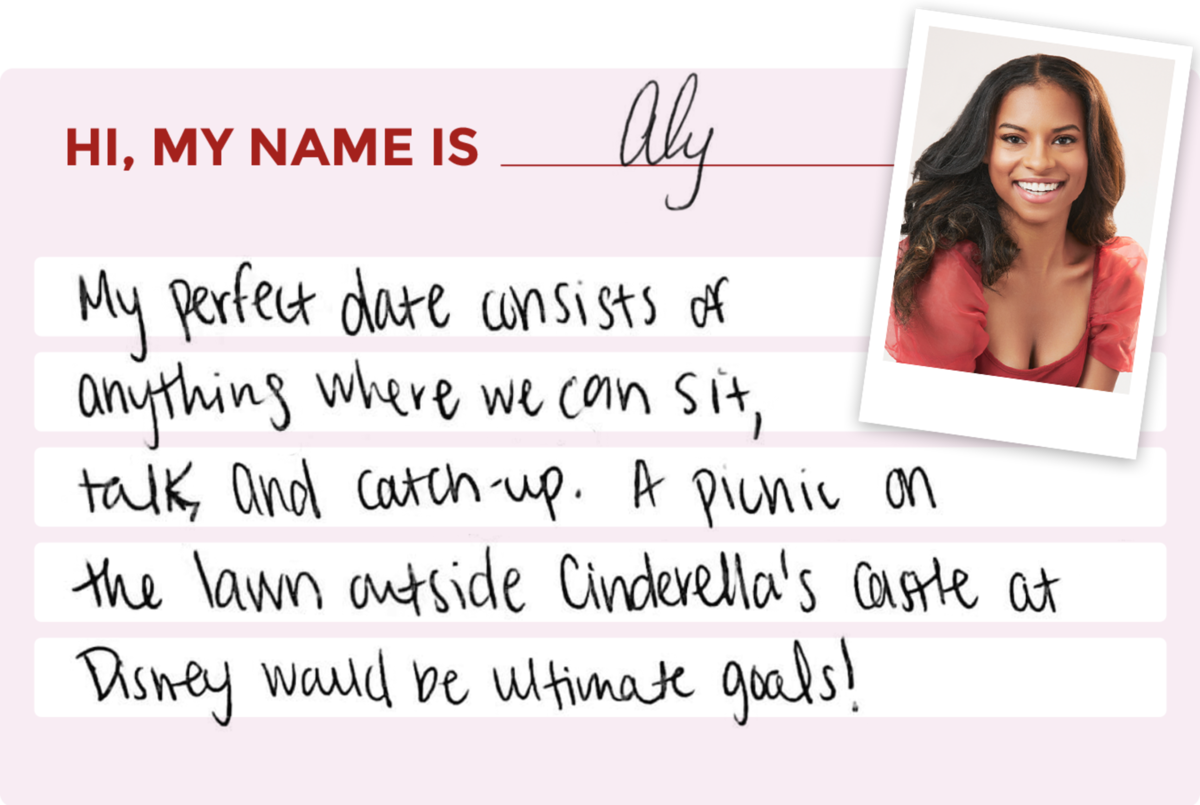 HI, MY NAME IS Aly
My perfect date consists of
anything where we can sit,
talk, and catch-up. A picnic on
the lawn outside Cinderella's castle at
Disney would be ultimate goals!